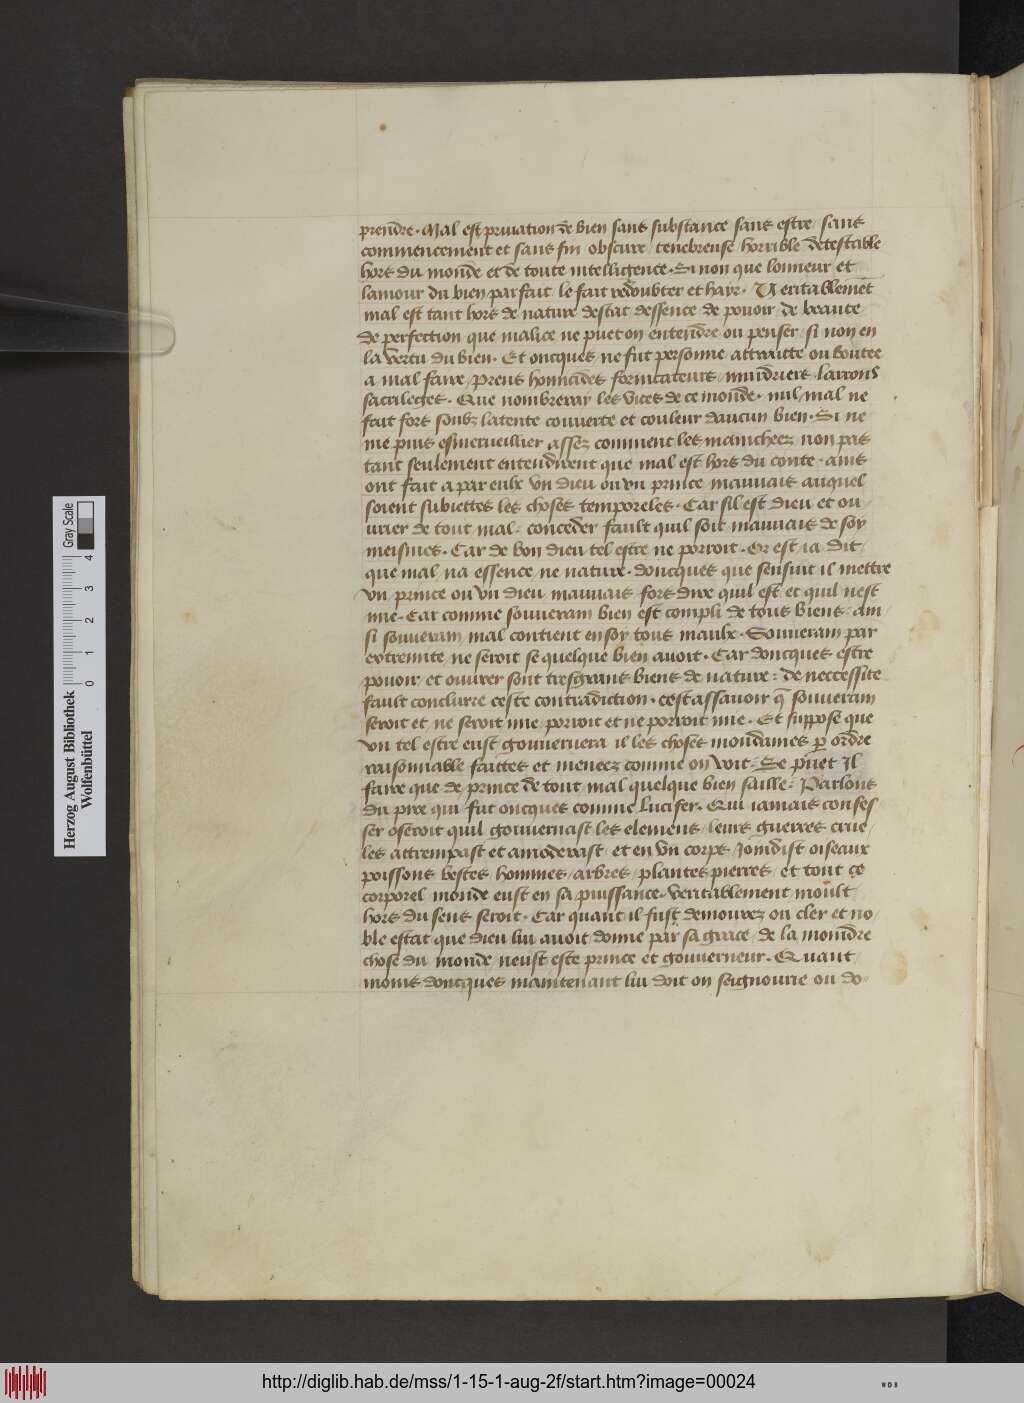 prendre · Mal est priuation de bien sans substance sans estre / sans
commencement et sans fin obscure tenebreuse horrible detestable
hors du monde et de toute intelligence · Si non que lonneur et
lamour du bien parfait / le fait redoubter et hayr · Veritablemēt
mal est tant hors de nature destat dessence de pouoir / de beaute
de perfection que malice ne puet on entendre ou penser / si non en
la vertu du bien · Et oncques ne fut personne attraitte ou boutee
a mal faire / prens homicides fornicateurs / murdriers · larrons
sacrileges · Que nombreray les vices de ce monde · nul mal ne
fait fors soubz latente couuerte et couleur daucun bien · Si ne
me puis esmerueillier assez comment les manicheez non pas
tant seulement entendirent que mal est hors du conte · ains
ont fait a par eulx vn dieu ou vn prince mauuais auquel
soient subiettes les choses temporeles · Car sil est dieu et ou /
urier de tout mal : conceder fault quil soit mauuais de soy
meismes · Car de bon dieu tel estre ne porroit · Or est ia dit /
que mal na essence ne nature · doncques que sensuit il mettre
vn prince ou vn dieu mauuais / fors dire quil est et quil nest
mie · Car comme souuerain bien est compli de tous biens : ain
si souuerain mal contient en soy tous maulx · Souuerain par
extremite ne seroit se quelque bien auoit · Car doncques estre
pouoir et ouurer sont tresgrans biens de nature : de neccessite
fault conclurre ceste contradiction · cest assauoir q̄ souuerain
seroit et ne seroit mie / porroit et ne porroit mie · Et suppose que
vn tel estre eust gouuernera il les choses mondaines p ordre
raisonnable faittes et meneez comme on voit · Se puet Jl
faire que de prince de tout mal quelque bien saille : Parlons
du pire qui fut oncques comme lucifer · Qui iamais confes
ser oseroit quil gouuernast les elemens / leurs guerres crue /
les attrempast et amoderast / et en vn corps / Joindist oiseaux
poissons bestes hommes / arbres / plantes pierres / et tout ce
corporel monde eust en sa puissance · veritablement moult
hors du sens seroit · Car quant il fust demourez ou cler et no /
ble estat que dieu lui auoit donne par sa grace / de la moindre
chose du monde neust este prince et gouuerneur · Quant
moins doncques maintenant lui doit on seignourie ou do /
Herzog August Bibliothek
Wolfenbüttel
0 1 2 3 4
Gray Scale
http://diglib.hab.de/mss/1-15-1-aug-2f/start.htm?image=00024
WDB